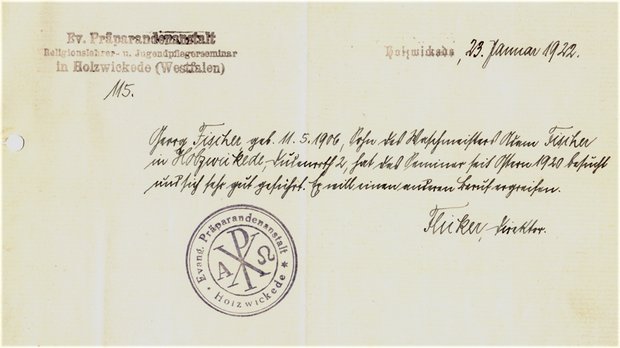 Ev. Präparandenanstalt
Religionslehrer- u. Jugendpflegerseminar
in Holzwickede (Westfalen)
115.
Holzwickede, 23. Januar 1922.
Georg Fischer geb. 11.5.1906, Sohn des Waschmeisters Adam Fischer
in Holzwickede, 2, hat das Seminar seit Ostern 1920 besucht
und sich sehr gut geführt. Er will einen anderen Beruf ergreifen.
Direktor.
Evang. Präparandenanstalt
A Ω
Holzwickede